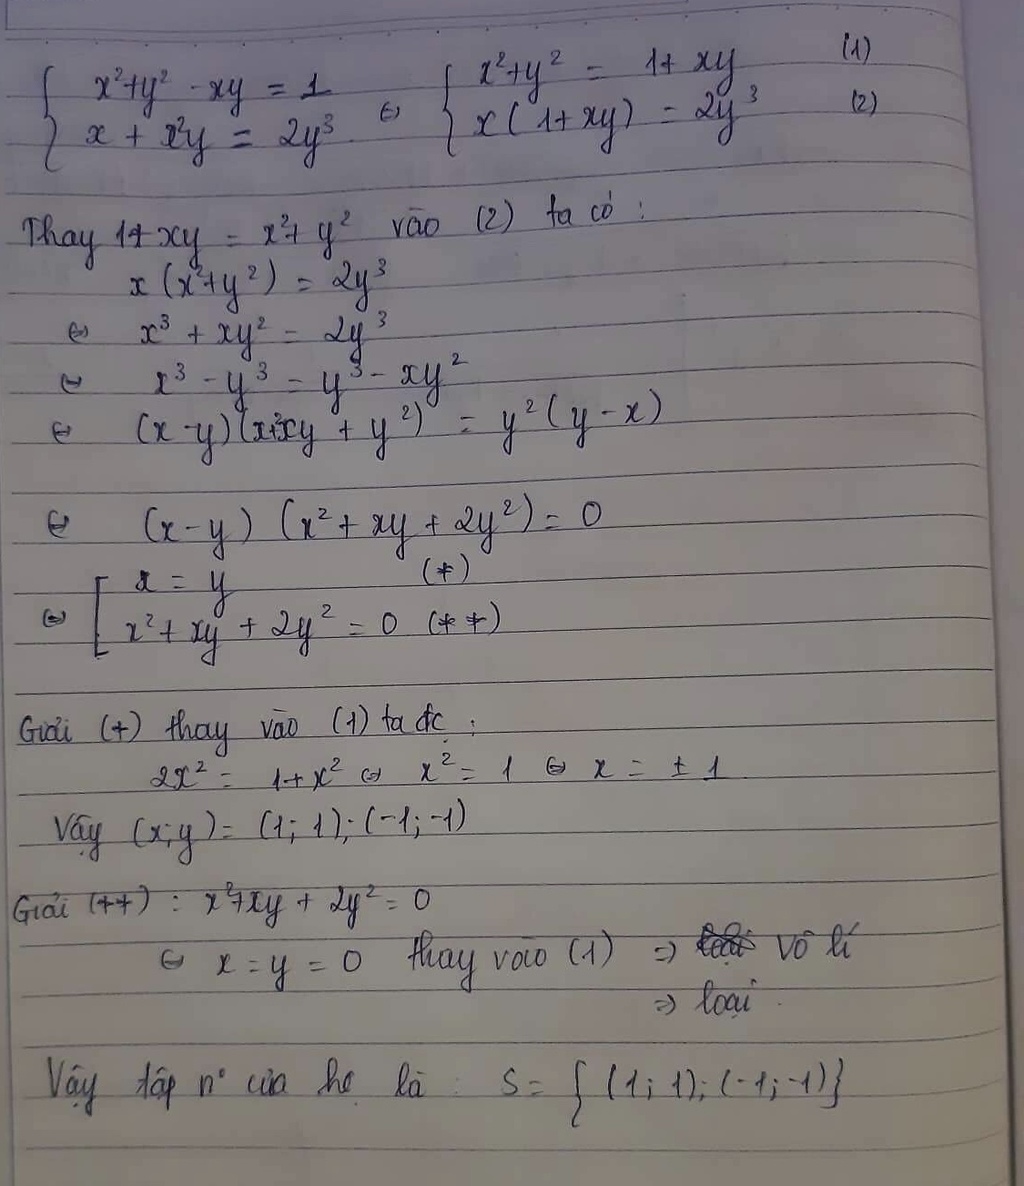 { x² + y² - xy = 1 ⇔ { x² + y² = 1 + xy (1)
{ x + x²y = 2y³ { x(1 + xy) = 2y³ (2)
Thay 1 + xy = x² + y² vào (2) ta có :
x(x² + y²) = 2y³
⇔ x³ + xy² = 2y³
⇔ x³ - y³ = y³ - xy²
⇔ (x - y)(x² + xy + y²) = y²(y - x)
⇔ (x - y)(x² + xy + 2y²) = 0
⇔ [ x = y (*)
[ x² + xy + 2y² = 0 (**)
Giải (*) thay vào (1) ta đc :
2x² = 1 + x² ⇔ x² = 1 ⇔ x = ± 1
Vậy (x;y) = (1; 1); (-1; -1)
Giải (**) : x² + xy + 2y² = 0
⇔ x = y = 0 thay vào (1) ⇒ vô lí
⇒ loại.
Vậy tập n° của hệ là : S = { (1; 1); (-1; -1)}